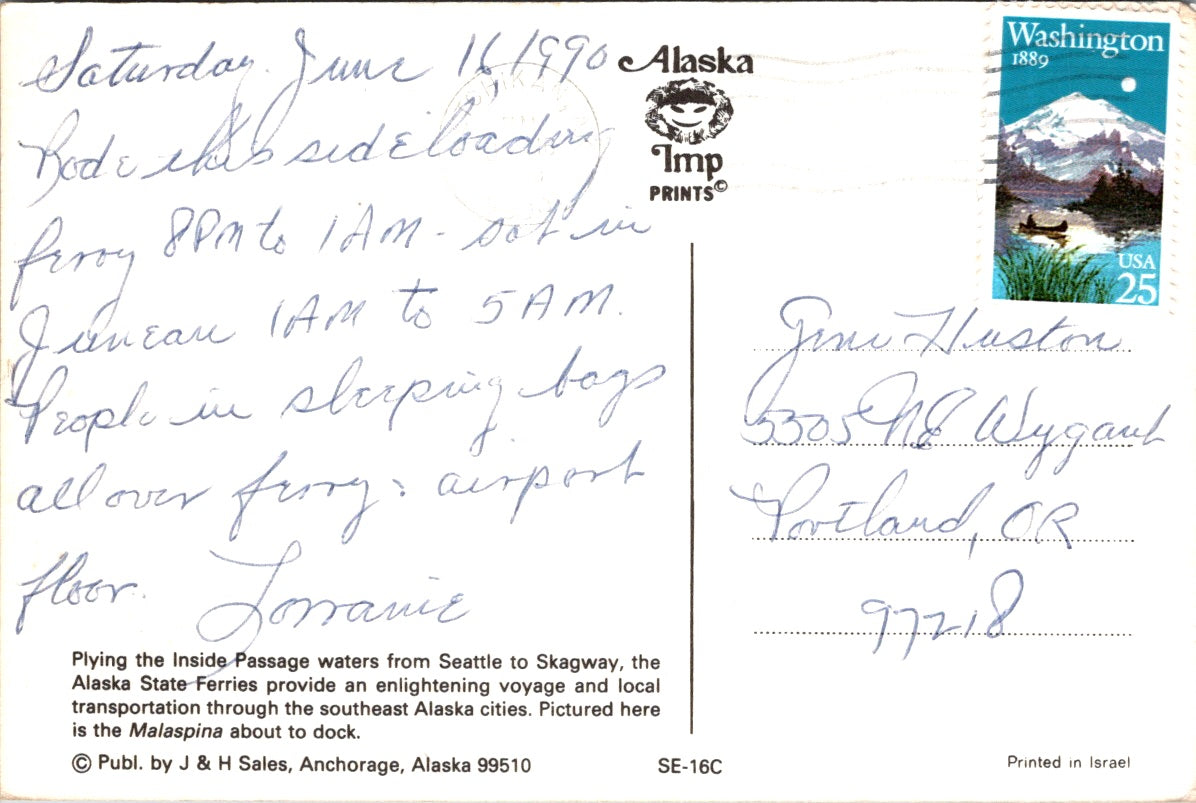 Saturday. June 16 1990
Rode this side loading
ferry 8PM to 1AM - sat in
Juneau 1AM to 5AM.
People in sleeping bags
all over ferry & airport
floor. Lorraine
Plying the Inside Passage waters from Seattle to Skagway, the
Alaska State Ferries provide an enlightening voyage and local
transportation through the southeast Alaska cities. Pictured here
is the Malaspina about to dock.
© Publ. by J & H Sales, Anchorage, Alaska 99510
SE-16C
Alaska
Imp
PRINTS©
Washington
1889
USA
25
Huston
5305 NE Wygant
Portland, OR
97218
Printed in Israel